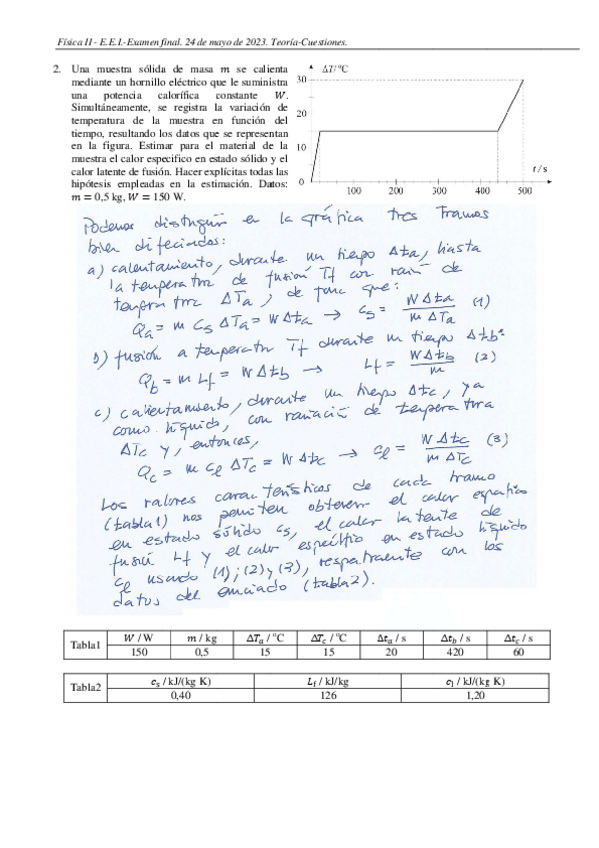 Física II - E.E.I.-Examen final. 24 de mayo de 2023. Teoría-Cuestiones.
2. Una muestra sólida de masa m se calienta
mediante un hornillo eléctrico que le suministra
una potencia calorífica constante W.
Simultáneamente, se registra la variación de
temperatura de la muestra en función del
tiempo, resultando los datos que se representan
en la figura. Estimar para el material de la
muestra el calor especifico en estado sólido y el
calor latente de fusión. Hacer explícitas todas las
hipótesis empleadas en la estimación. Datos:
m = 0,5 kg, W = 150 W.
ΔT/ºC
30
20
10
0
100 200 300 400 500
t / s
Podemos distinguir en la gráfica tres tramos
bien difeciados:
a) calentamiento, durante un tiempo Δta, hasta
la temperatura de fusión Tf con varia de
temperatura ΔTa, de forma que:
Qa = m cs ΔTa = W Δta → cs = W Δta / m ΔTa (1)
b) fusión a temperatura Tf durante un tiempo Δtb:
Qb = m Lf = W Δtb → Lf = W Δtb / m (2)
c) calentamiento, durante un tiempo Δtc, ya
como líquido, con variación de temperatura
ΔTc y, entonces,
Qc = m cl ΔTc = W Δtc → cl = W Δtc / m ΔTc (3)
Los valores característicos de cada tramo
(tabla1) nos permiten obtener el calor específico
en estado sólido cs, el calor latente de
fusión Lf y el calor específico en estado líquido
cl usando (1), (2) y (3), respectivamente con los
datos del enunciado (tabla2).
Tabla1 W / W m / kg ΔTa / ºC ΔTc / ºC Δta / s Δtb / s Δtc / s
150 0,5 15 15 20 420 60
Tabla2 cs / kJ/(kg K) Lf / kJ/kg cl / kJ/(kg K)
0,40 126 1,20